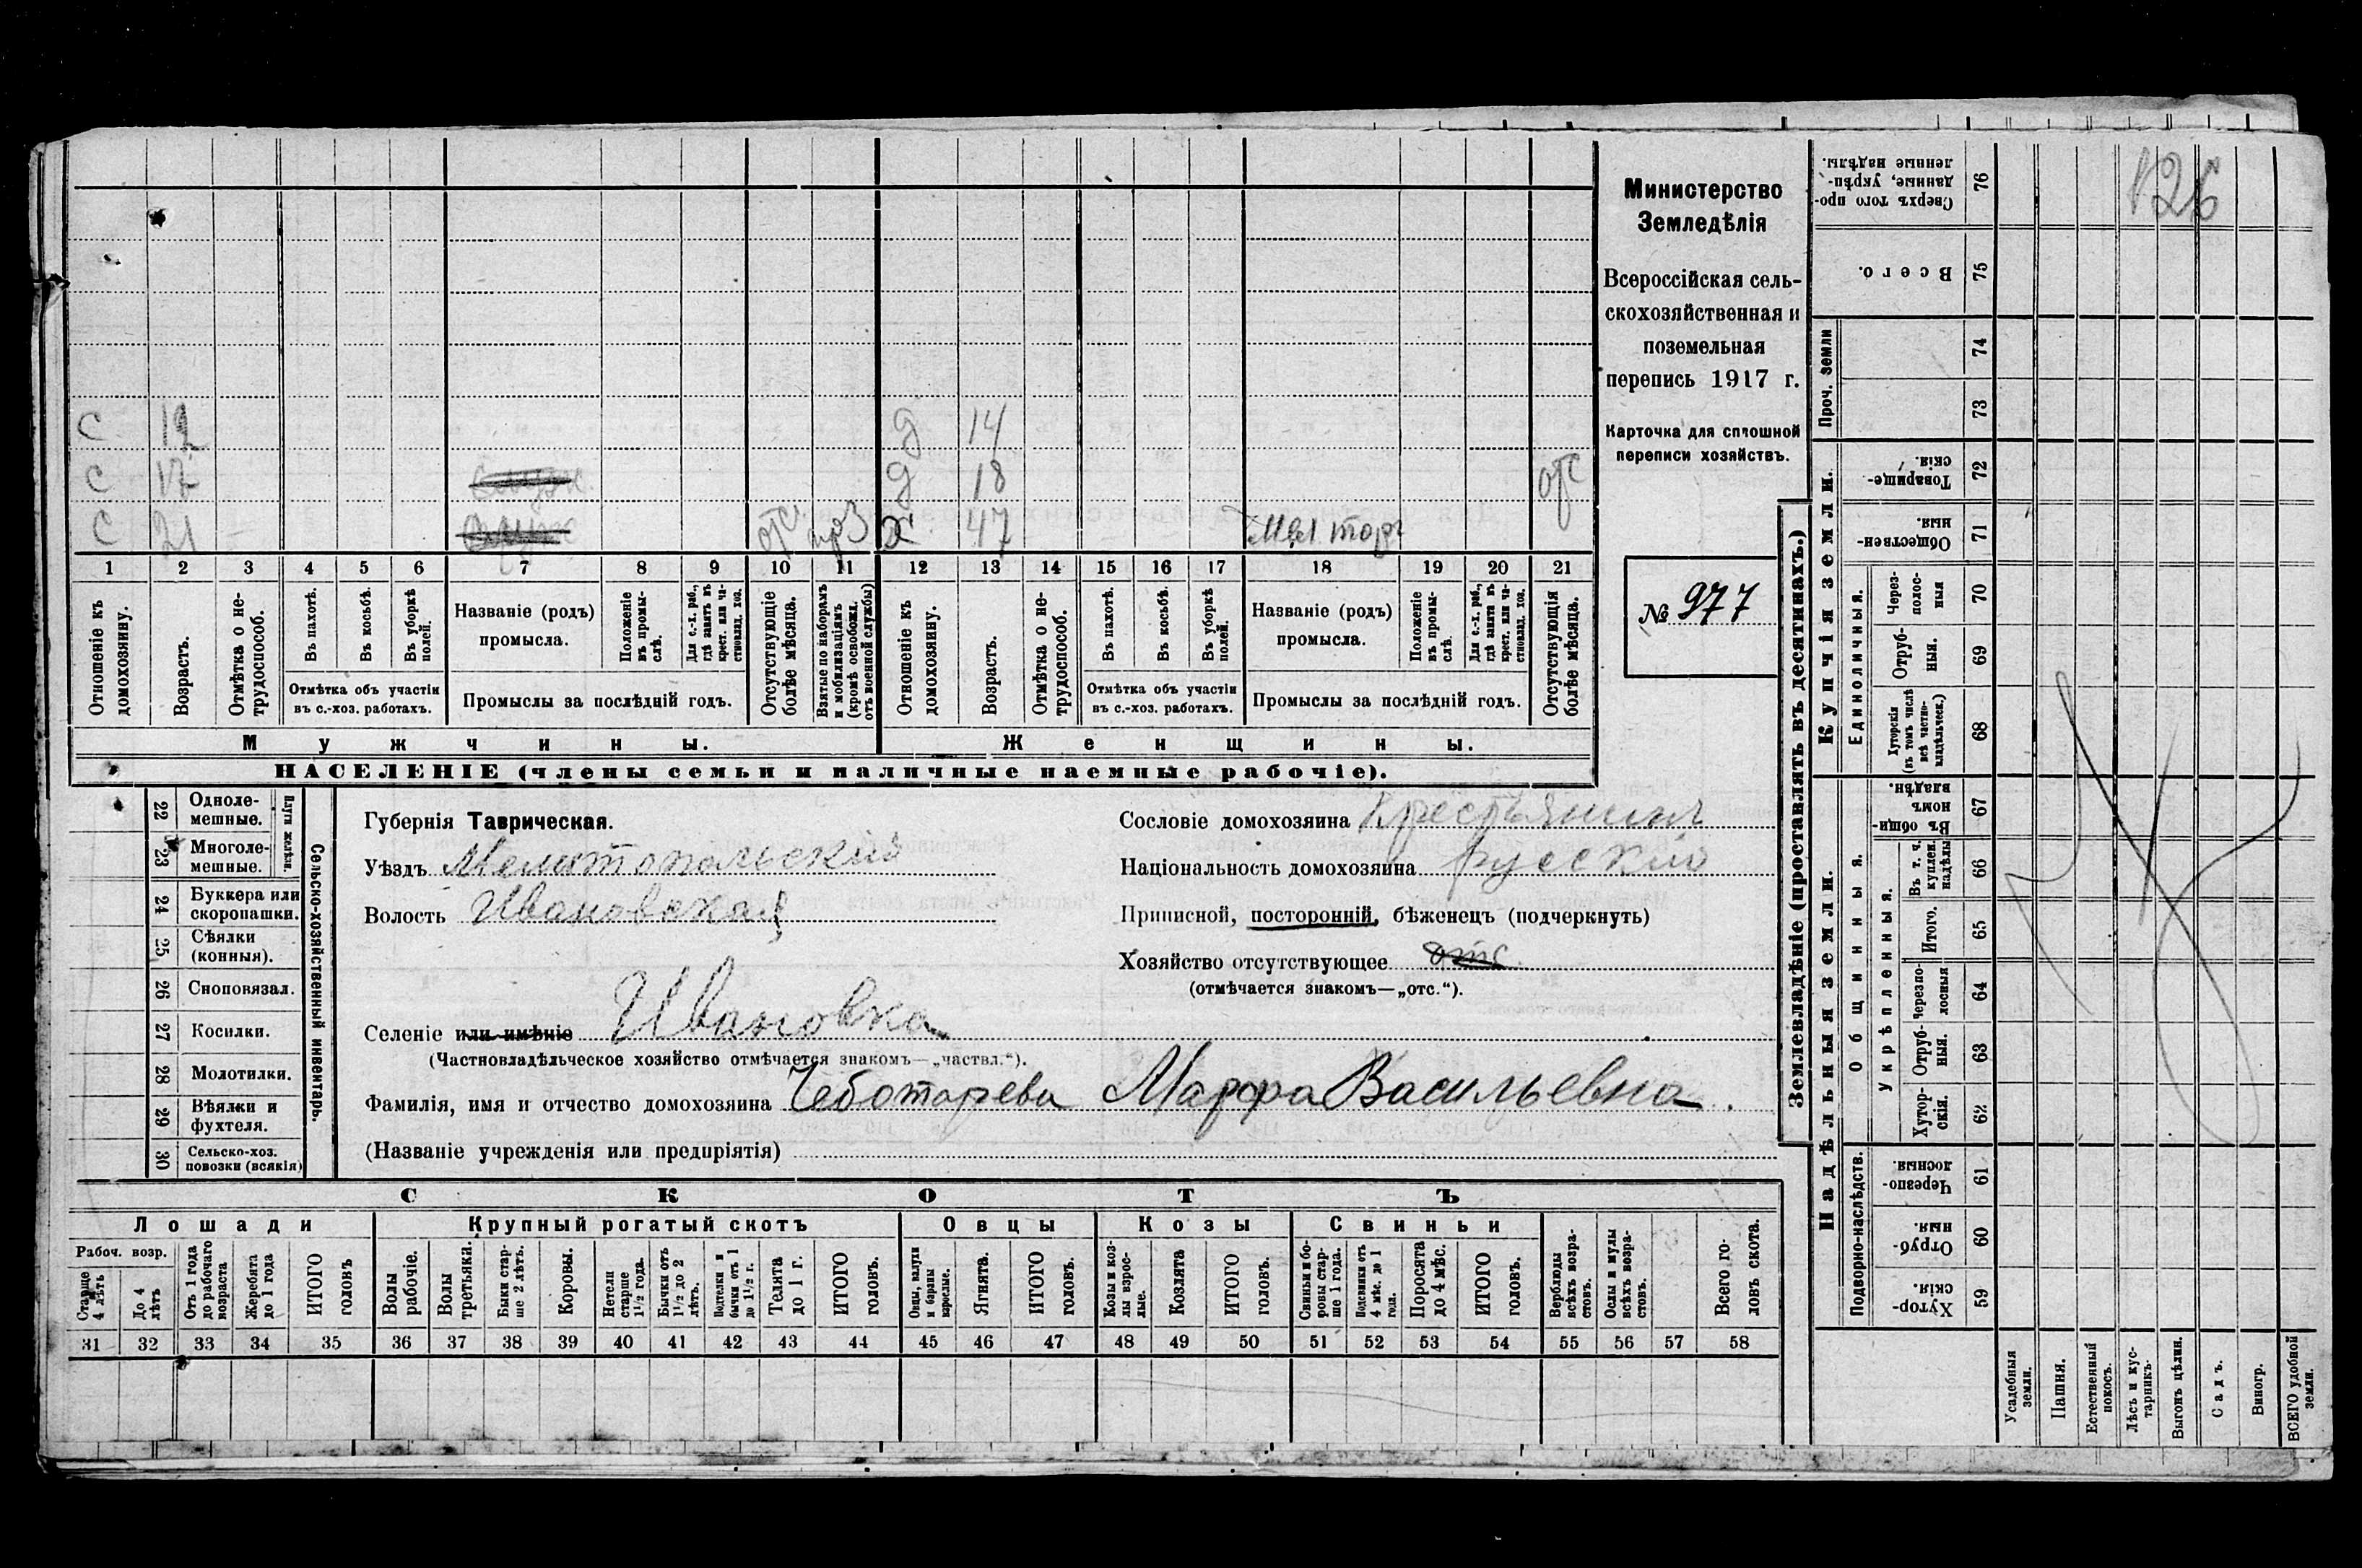 126
Министерство
Земледѣлія
Всероссійская сель-
скохозяйственная и
поземельная
перепись 1917 г.
Карточка для сплошной
переписи хозяйствъ.
№ 977
С 12 д 14
С 17 д 18 отс
С 21 отс х 47 торг
1 2 3 4 5 6 7 8 9 10 11 12 13 14 15 16 17 18 19 20 21
Отношеніе къ домохозяину.
Возрастъ.
Отмѣтка о не-трудоспособ.
Въ пахотѣ.
Въ косьбѣ.
Въ уборкѣ полей.
Отмѣтка объ участіи
въ с.-хоз. работахъ.
Названіе (родъ)
промысла.
Положеніе въ промы-слѣ.
Для с.-х. раб., гдѣ занятъ въ крест. или ча-стновлад. хоз.
Промыслы за послѣдній годъ.
Отсутствующіе болѣе мѣсяца.
Взятые по наборамъ и мобилизаціямъ (кромѣ освобожд. отъ военной службы)
Отношеніе къ домохозяину.
Возрастъ.
Отмѣтка о не-трудоспособ.
Въ пахотѣ.
Въ косьбѣ.
Въ уборкѣ полей.
Отмѣтка объ участіи
въ с.-хоз. работахъ.
Названіе (родъ)
промысла.
Положеніе въ промы-слѣ.
Для с.-х. раб., гдѣ занята въ крест. или ча-стновлад. хоз.
Промыслы за послѣдній годъ.
Отсутствующія болѣе мѣсяца.
Мужчины. Женщины.
НАСЕЛЕНІЕ (члены семьи и наличные наемные рабочіе).
Сельско-хозяйственный инвентарь.
Плуги желѣзн.
22 Одноле-мешные.
23 Многоле-мешные.
24 Буккера или скоропашки.
25 Сѣялки (конныя).
26 Сноповязал.
27 Косилки.
28 Молотилки.
29 Вѣялки и фухтеля.
30 Сельско-хоз. повозки (всякія)
Губернія Таврическая.
Уѣздъ Мелитопольскій
Волость Ивановская
Селеніе или имѣніе Ивановка
(Частновладѣльческое хозяйство отмѣчается знакомъ—„частвл.“).
Фамилія, имя и отчество домохозяина Чеботарева Марфа Васильевна.
(Названіе учрежденія или предпріятія)
Сословіе домохозяина Крестьянинъ
Національность домохозяина русскій
Приписной, посторонній, бѣженецъ (подчеркнуть)
Хозяйство отсутствующее отс.
(отмѣчается знакомъ—„отс.“).
СКОТЪ
Лошади Крупный рогатый скотъ Овцы Козы Свиньи
Рабоч. возр.
Старше 4 лѣтъ
До 4 лѣтъ
Отъ 1 года до рабочаго возраста
Жеребята до 1 года
ИТОГО головъ
Волы рабочіе.
Волы третьяки.
Быки стар-ше 2 лѣтъ.
Коровы.
Нетели старше 1½ года.
Бычки отъ 1½ до 2 лѣтъ.
Подтелки и бычки отъ 1 до 1½ г.
Телята до 1 г.
ИТОГО головъ.
Овцы, валухи и бараны взрослые.
Ягнята.
ИТОГО головъ.
Козы и коз-лы взрос-лые.
Козлята
ИТОГО головъ.
Свиньи и бо-ровы стар-ше 1 года.
Подсвинки отъ 4 мѣс. до 1 года.
Поросята до 4 мѣс.
ИТОГО головъ.
Верблюды всѣхъ возра-стовъ.
Ослы и мулы всѣхъ возра-стовъ.
Всего го-ловъ скота.
31 32 33 34 35 36 37 38 39 40 41 42 43 44 45 46 47 48 49 50 51 52 53 54 55 56 57 58
Землевладѣніе (проставлять въ десятинахъ.)
Надѣльныя земли. Купчія земли. Проч. земли
Подворно-наслѣдств. Общинныя. Единоличныя.
Укрѣпленныя.
76 Сверхъ того про-данные, укрѣп-ленные надѣлы.
75 Всего.
74
73
72 Товарище-скія.
71 Обществен-ныя.
70 Через-полос-ныя
69 Отруб-ныя.
68 Хуторскія (въ томъ числѣ всѣ частно-владѣльческ.)
67 Въ общин-номъ владѣн.
66 Въ т. ч. куплен. надѣлы
65 Итого.
64 Черезпо-лосныя
63 Отруб-ныя.
62 Хутор-скія.
61 Черезпо-лосныя.
60 Отруб-ныя.
59 Хутор-скія.
Усадебныя земли.
Пашня.
Естественный покосъ.
Лѣсъ и кус-тарникъ.
Выгонъ цѣлин.
Садъ.
Виногр.
ВСЕГО удобной земли.